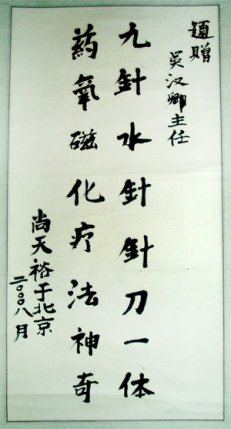 題贈
吴汉卿主任
九針水針針刀一体
药氧磁化疗法神奇
尚天裕于北京
二〇〇〇八月